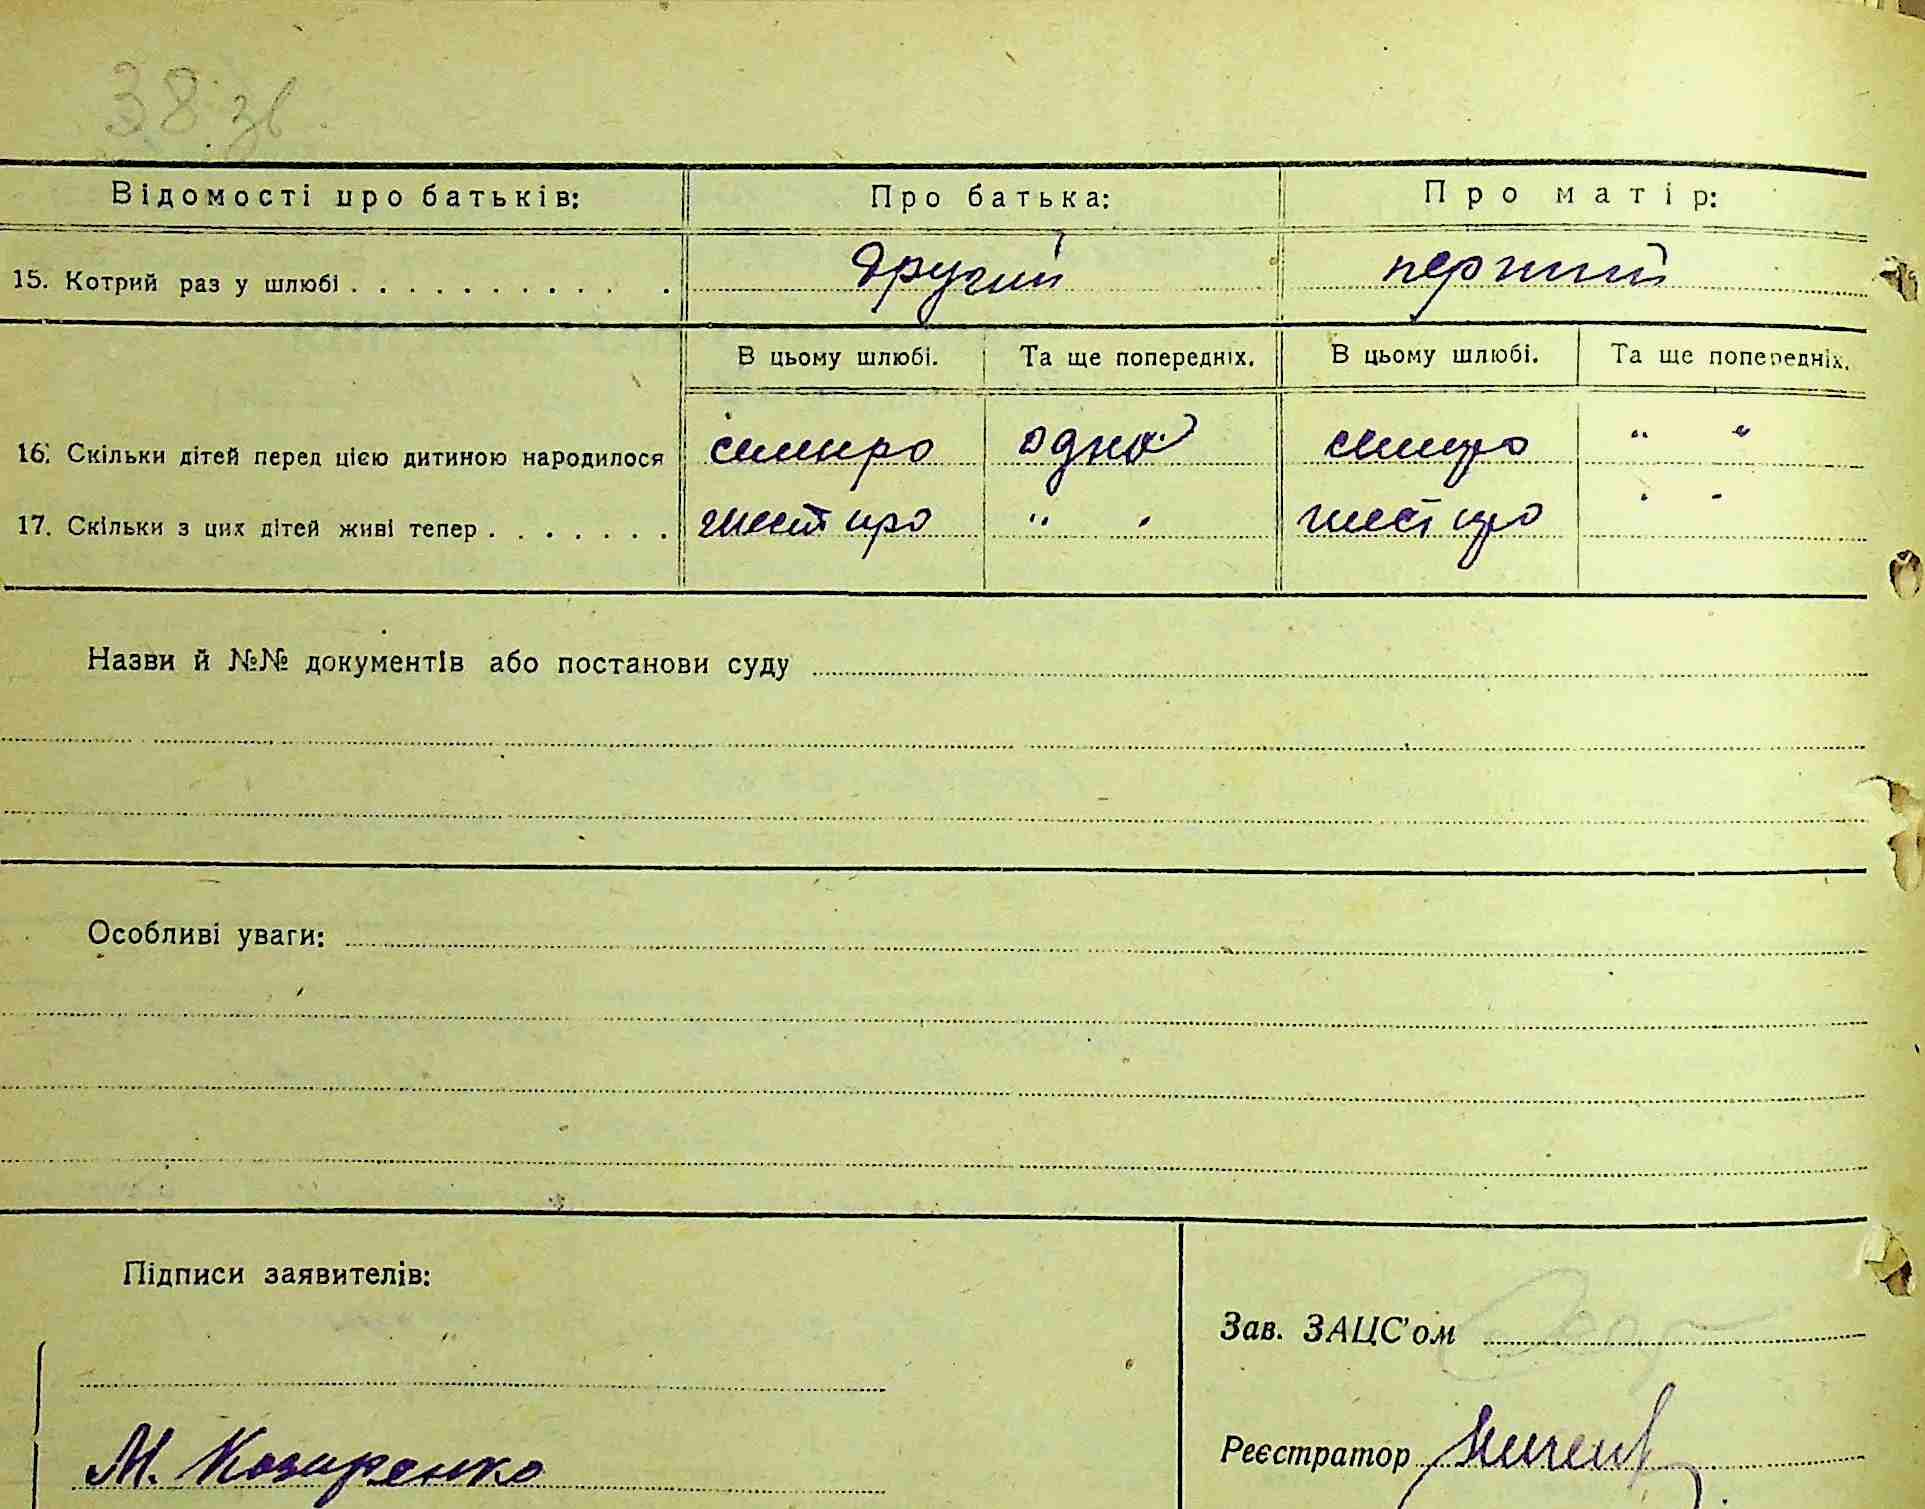 38 зв.
Відомості про батьків: Про батька: Про матір:
15. Котрий раз у шлюбі . . . . . . . . . . . другий перший
В цьому шлюбі. Та ще попередніх. В цьому шлюбі. Та ще попередніх.
16. Скільки дітей перед цією дитиною народилося семиро одна семиро " "
17. Скільки з цих дітей живі тепер . . . . . . . шестиро " " шестиро " "
Назви й №№ документів або постанови суду
Особливі уваги:
Підписи заявителів:
Зав. ЗАЦС'ом
М. Козиренко
Реєстратор